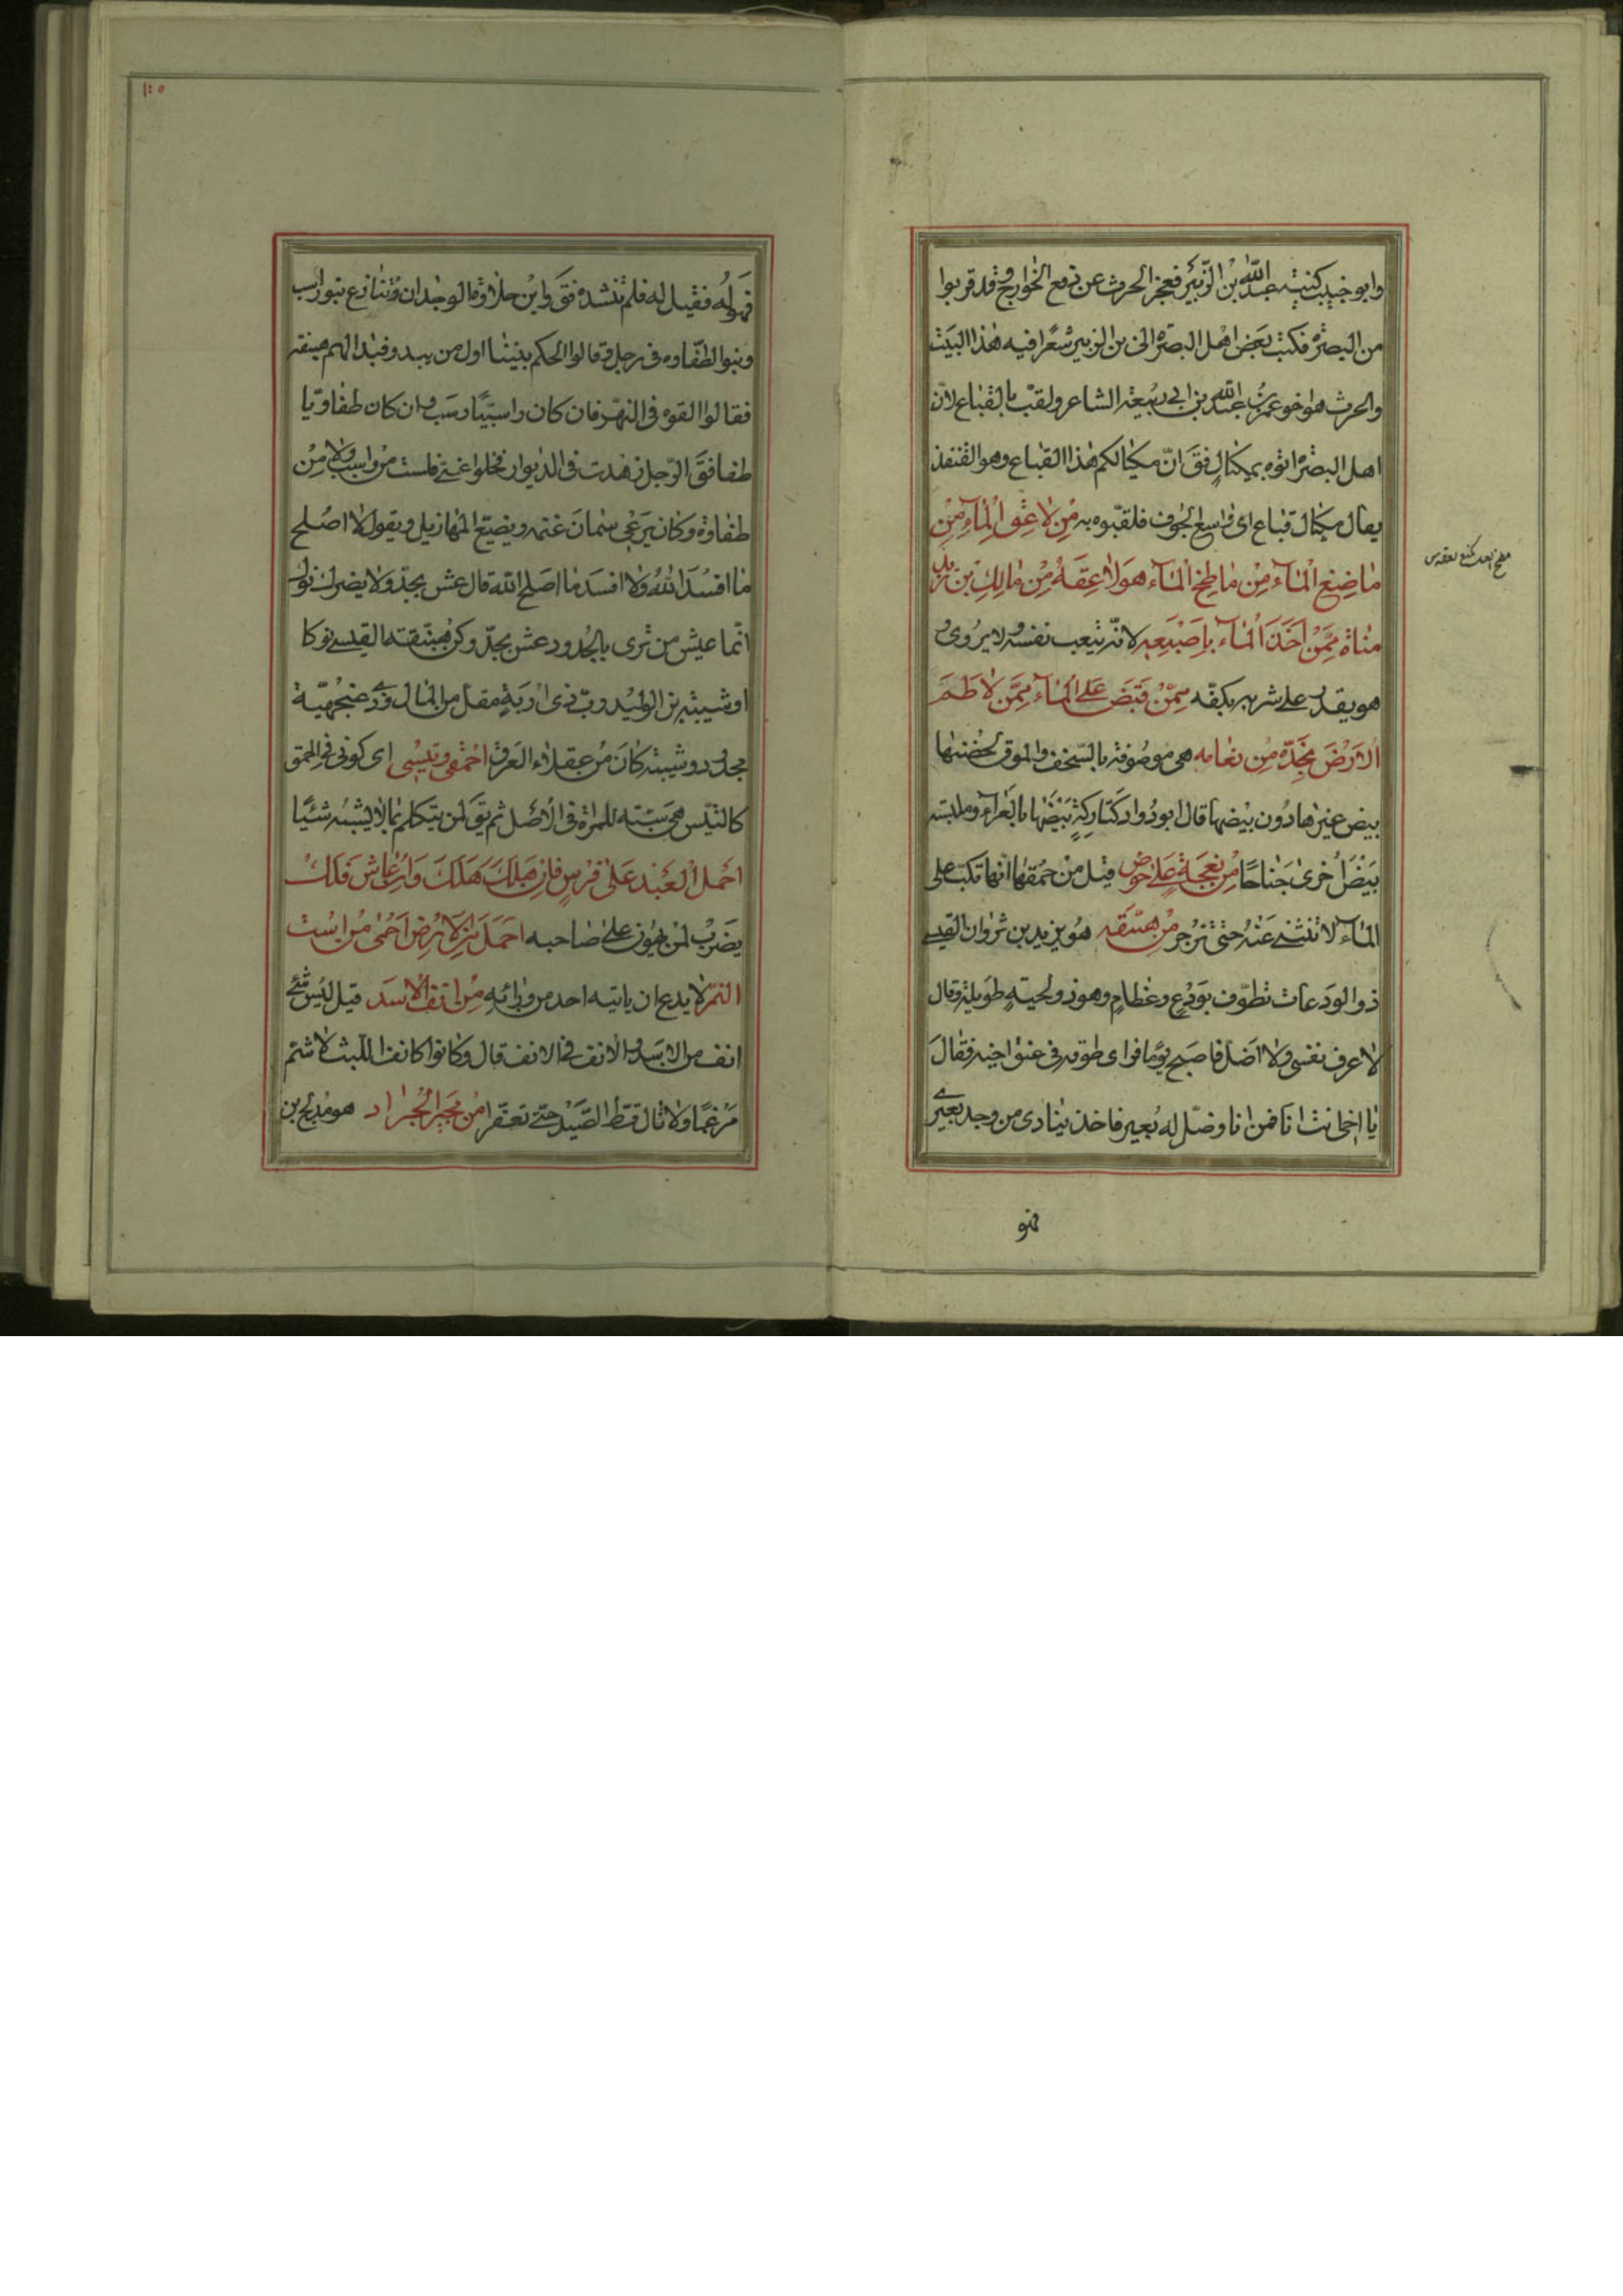 وابو خبيب كنيته عبد الله بن الزبير فعجز الحرث عن دفع الخوارج وقد قربوا
من البصرة فكتب بعض اهل البصرة الى بن الزبير شعرا فيه هذا البيت
والحرث هو اخو عمر بن عبد الله بن ابي ربيعة الشاعر ولقب بالقباع لان
اهل البصرة اتوه بمكيال فق ان مكيالكم هذا القباع وهو القنفذ
يقال مكيال قباع اى واسع الجوف فلقبوه به من لاعق الماء من
ماضغ الماء من ماطخ الماء هو لاعقه من مالك بن زيد
مناة ممن اخذ الماء باصبعه لانه يتعب نفسه ولا يروى و
هو يقدر على شربه بكفه ممن قبض على الماء ممن لاطم
الارض بخده من نعامه هي موصوفة بالسخف والموق لحضنها
بيض غيرها دون بيضها قال ابو دواد كتاركة بيضها بالعراء وملبسة
بيض اخرى جناحا من نعجة على حوض قيل من حمقها انها تكب على
الماء لا تنثني عنه حتى تزجر من هبنقه هو يزيد بن ثروان القيسي
ذو الودعات تطوف بودع وعظام وهو ذو لحية طويلة وقال
لاعرف نفسى ولا اضل فاصبح يوما فراى طوقه فى عنق اخيه فقال
يا اخى انت انا فمن انا وضل له بعير فاخذ ينادى من وجد بعيرى
فهو
١٢٥
فهو له فقيل له فلم تنشده فق واين حلاوة الوجدان وتنازع بنو راسب
وبنو الطفاوه فى رجل وقالوا الحكم بيننا اول من يبدو فبدا لهم هبنقه
فقالوا القوه فى النهر فان كان راسبيا رسب وان كان طفاويا
طفا فق الرجل زهدت فى الديوان فخلوا عنى فلست من راسب ولا من
طفاوة وكان يرعى سمان غنمه ويضيع المهازيل ويقول لا اصلح
ما افسد الله ولا افسد ما اصلح الله قال عش بجد ولا يضرك نوك
انما عيش من ترى بالجدود عش بجد وكن هبنقة القيسى نوكا
او شيبة بن الوليد رب ذى اربة مقل من المال وذى عنجهية
مجدود وشيبة كان من عقلاء العرب احمقى وتيسى اى كونى فى الحمق
كالتيس هى سبة للمراة فى الاصل ثم يق لمن يتكلم بما لا يشبه شيئا
احمل العبد على فرس فان هلك هلك وان عاش فلك
يضرب لمن يهون على صاحبه احمل من الارض احمى من است
النمر لا يدع ان ياتيه احد من ورائه من انف الاسد قيل ليس شئ
انف من الاسد والانف فى الانف قال وكانوا كانف الليث لا شتم
مرغما ولا نال قط الصيد حتى تعفرا من مجير الجراد هو مدلج بن